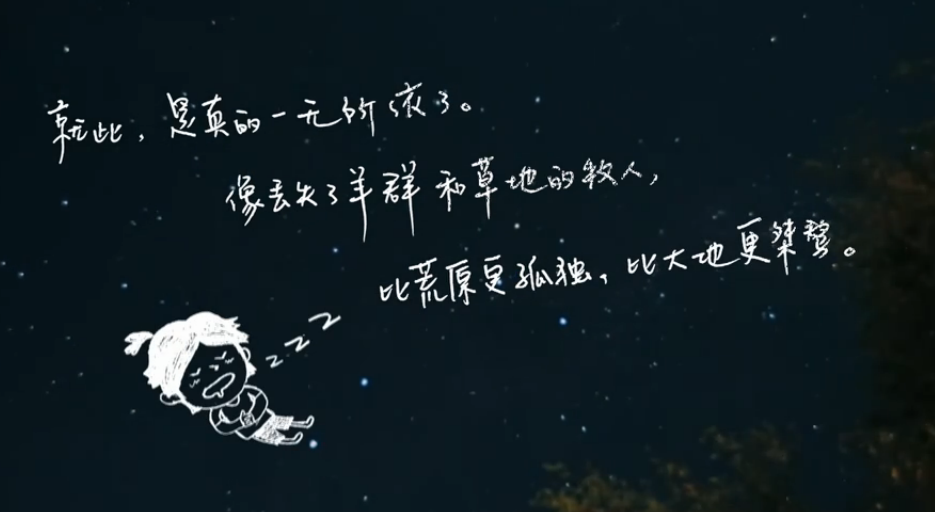 就此，是真的一无所依了。
像丢失了羊群和草地的牧人，
比荒原更孤独，比大地更桀骜。
z z z